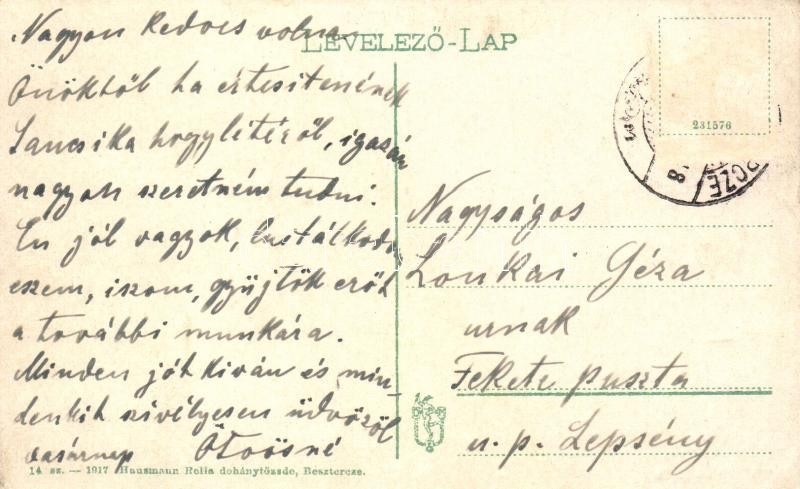 LEVELEZŐ-LAP
Nagyon kedves volna
Önöktől ha értesitenének
Jancsika hogylétéről, igazán
nagyon szeretném tudni.
Én jól vagyok, lustálkodo
eszem, iszom, gyüjtök erőt
a további munkára.
Minden jót kiván és min-
denkit szivélyesen üdvözöl
vasárnap Ötvösné
14 sz. — 1917 Hausmann Rella dohánytőzsde, Besztercze.
231576
Nagyságos
Lonkai Géza
urnak
Fekete puszta
u. p. Lepsény